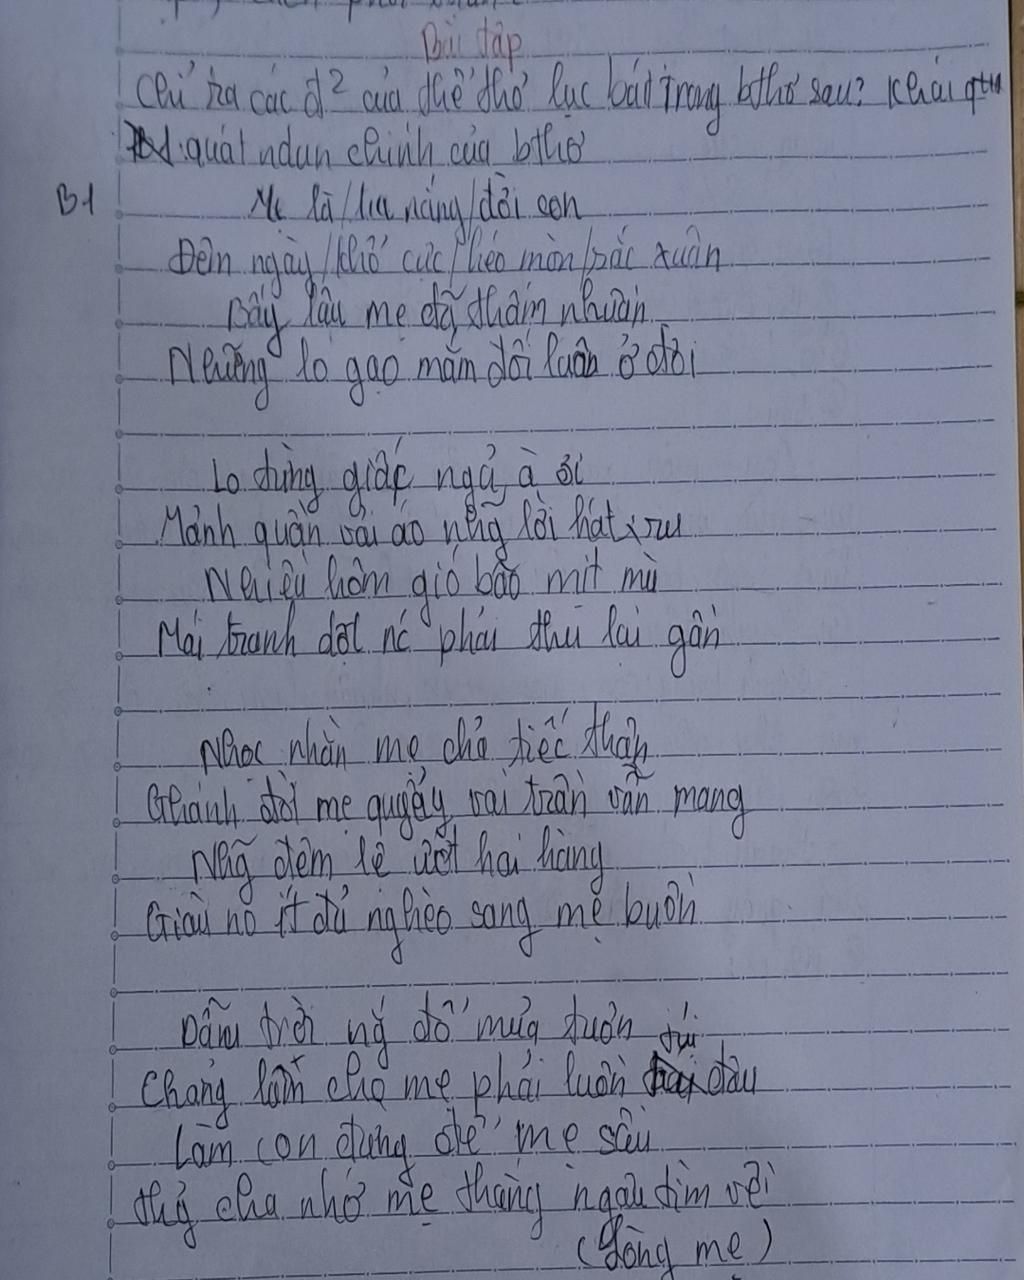 Bài tập
Chỉ ra các đ² của thể thơ lục bát trong bthơ sau? Khái
quát ndun chính của bthơ
B1 Mẹ là/tia nắng/đời con
Đêm ngày/khổ cực/héo mòn/sắc xuân
Bấy lâu mẹ đã thấm nhuần
Những lo gạo mắm dối luôn ở đời
Lo từng giấc ngả à ơi
Mảnh quần vải áo nhg lời hát ru
Nhiều hôm gió bão mịt mù
Mái tranh dột nc phải thu lại gần
Nhọc nhằn mẹ chả tiếc thân
Ghánh đời mẹ qugảy vai trần vẫn mang
Nhg đêm lệ ướt hai hàng
Giàu no ít đủ nghèo sang mẹ buồn
Dẫu trời ng đổ mưa tuôn
Chẳng làm cho mẹ phải luồn túi đâu
Làm con đừng để mẹ sầu
Thg cha nhớ mẹ tháng ngàu tìm về
(lòng mẹ)